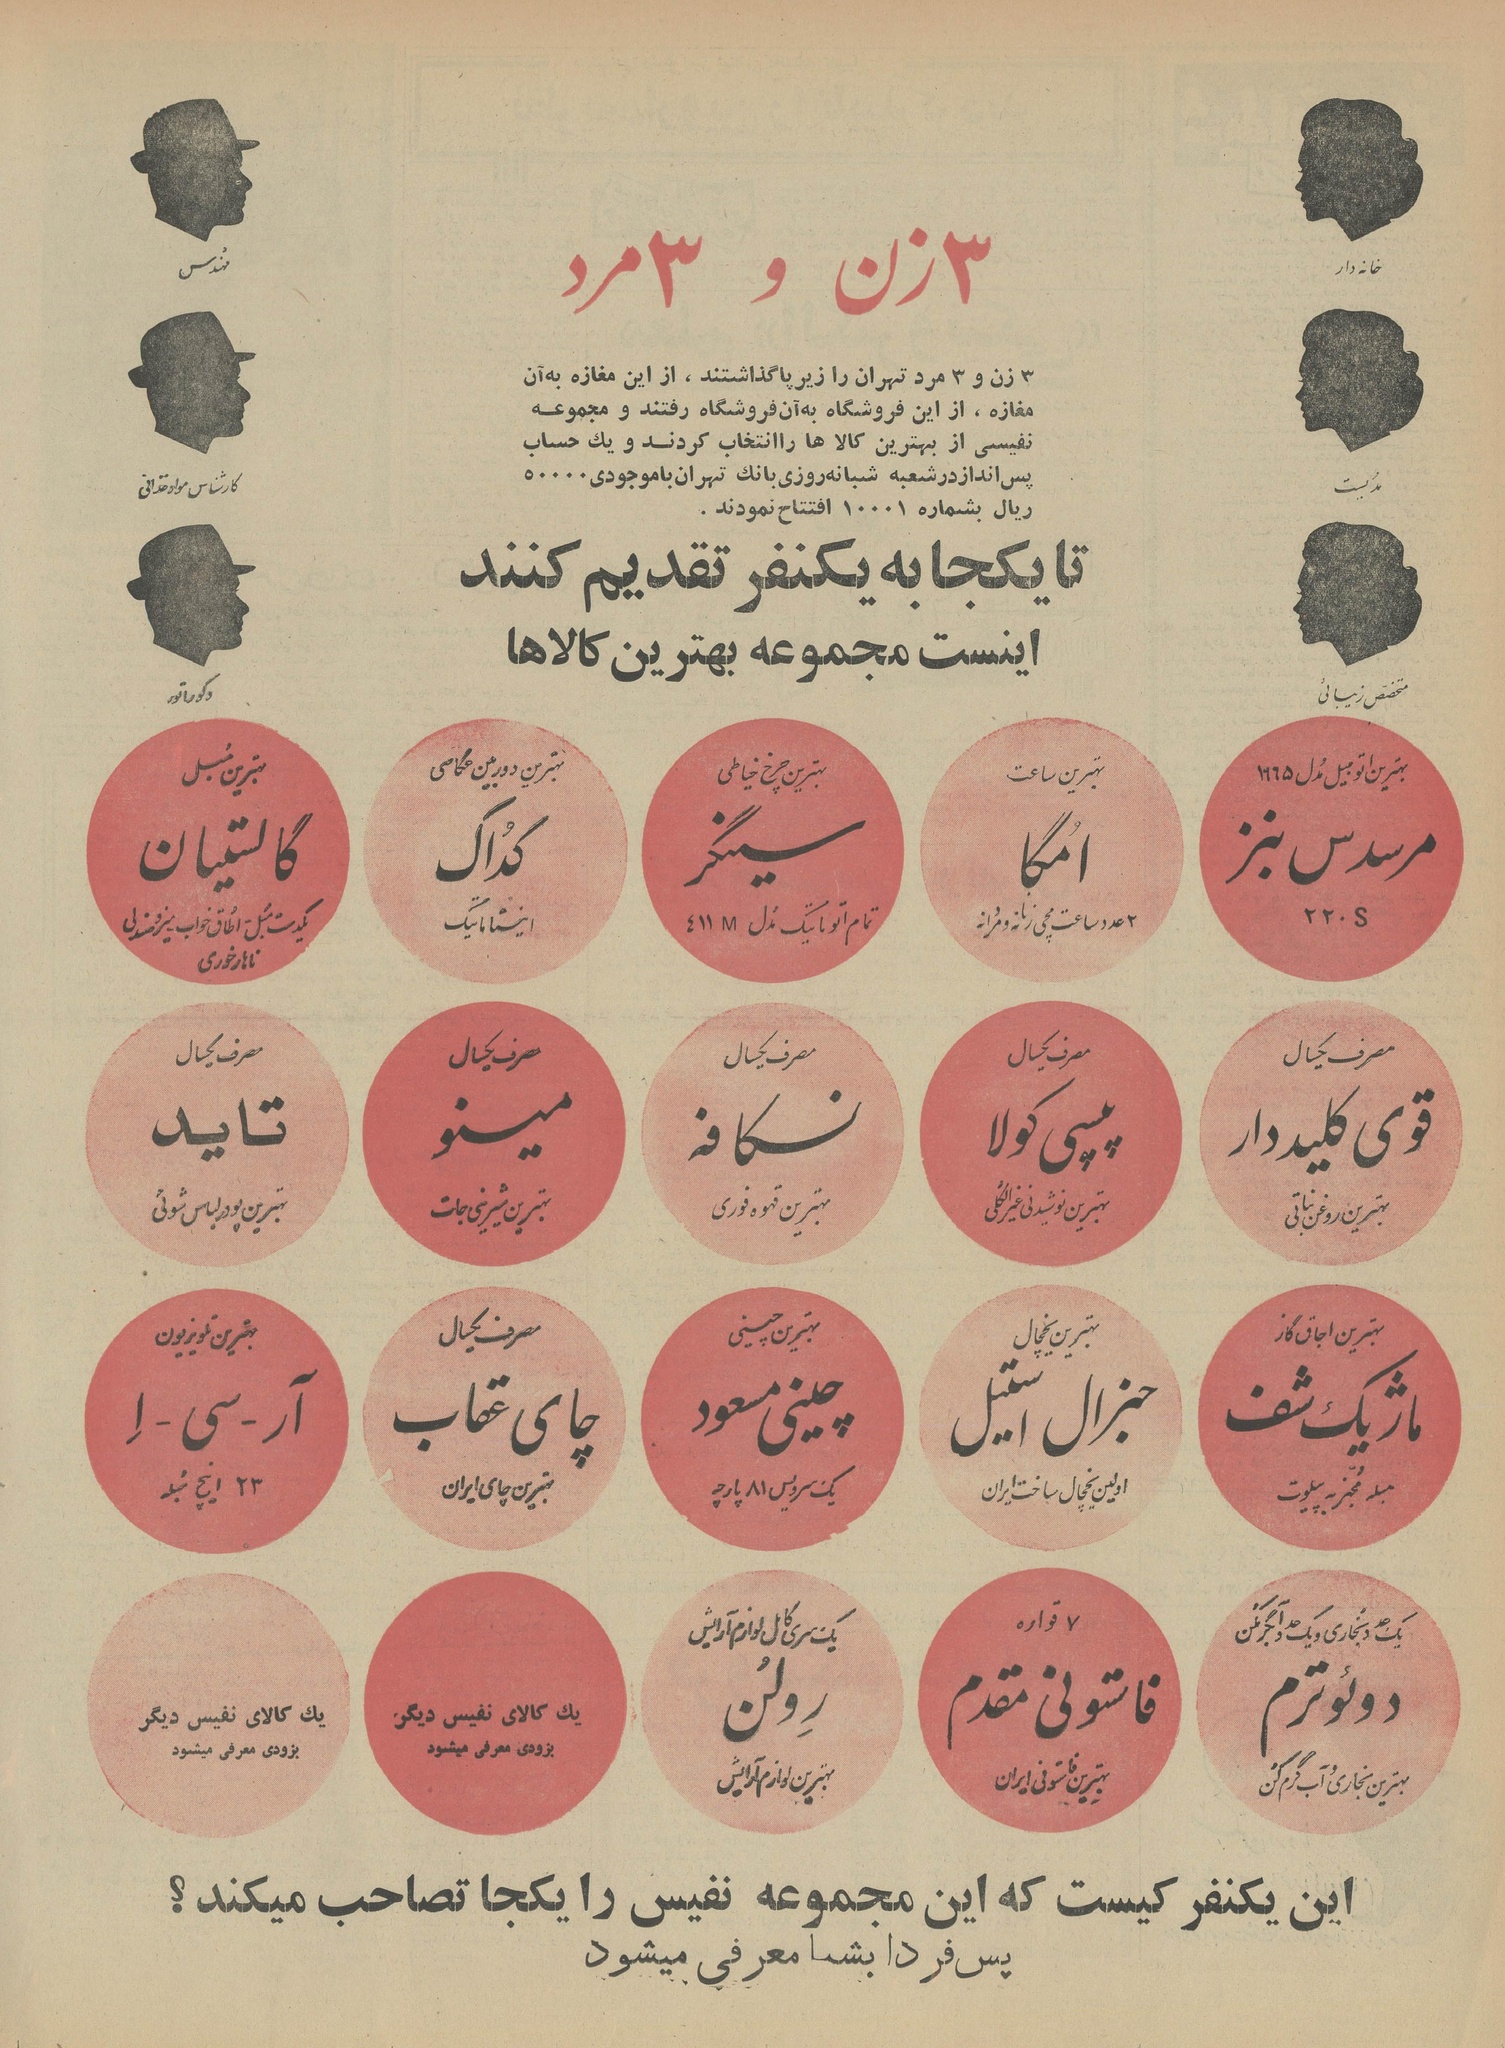 خانه دار
مدیست
متخصص زیبائی
مهندس
کارشناس مواد غذائی
دکوراتور
۳ زن و ۳ مرد
۳ زن و ۳ مرد تهران را زیر پا گذاشتند ، از این مغازه به‌آن
مغازه ، از این فروشگاه به‌آن فروشگاه رفتند و مجموعه
نفیسی از بهترین کالا ها را انتخاب کردند و یك حساب
پس‌انداز در شعبه شبانه‌روزی بانك تهران با موجودی ۵۰۰۰۰
ریال بشماره ۱۰۰۰۱ افتتاح نمودند .
تا یکجا به یکنفر تقدیم کنند
اینست مجموعه بهترین کالاها
بهترین اتومبیل مدل ۱۹۶۵
مرسدس بنز
۲۲۰S
بهترین ساعت
اُمگا
۲ عدد ساعت مچی زنانه و مردانه
بهترین چرخ خیاطی
سینگر
تمام اتوماتیک مدل ۴۱۱ M
بهترین دوربین عکاسی
کداک
اینستاماتیک
بهترین مُبل
گالستیان
یکدست مبل - اطاق خواب - میز و صندلی
ناهار خوری
مصرف یکسال
قوی کلیددار
بهترین روغن نباتی
مصرف یکسال
پپسی کولا
بهترین نوشیدنی غیر الکلی
مصرف یکسال
نسکافه
بهترین قهوه فوری
مصرف یکسال
مینو
بهترین شیرینی جات
مصرف یکسال
تاید
بهترین پودر لباس شوئی
بهترین اجاق گاز
ماژیک شف
مبله مجهز به پیلوت
بهترین یخچال
جنرال استیل
اولین یخچال ساخت ایران
بهترین چینی
چینی مسعود
یک سرویس ۸۱ پارچه
مصرف یکسال
چای عقاب
بهترین چای ایران
بهترین تلویزیون
آر - سی - اِ
۲۳ اینچ مُبله
یک عدد بخاری و یک عدد آبگرمکن
دوئوترم
بهترین بخاری و آب گرم کن
۷ قواره
فاستونی مقدم
بهترین فاستونی ایران
یک سری کامل لوازم آرایش
رولُن
بهترین لوازم آرایش
یك کالای نفیس دیگر
بزودی معرفی میشود
یك کالای نفیس دیگر
بزودی معرفی میشود
این یکنفر کیست که این مجموعه نفیس را یکجا تصاحب میکند ؟
پس‌فردا بشما معرفی میشود